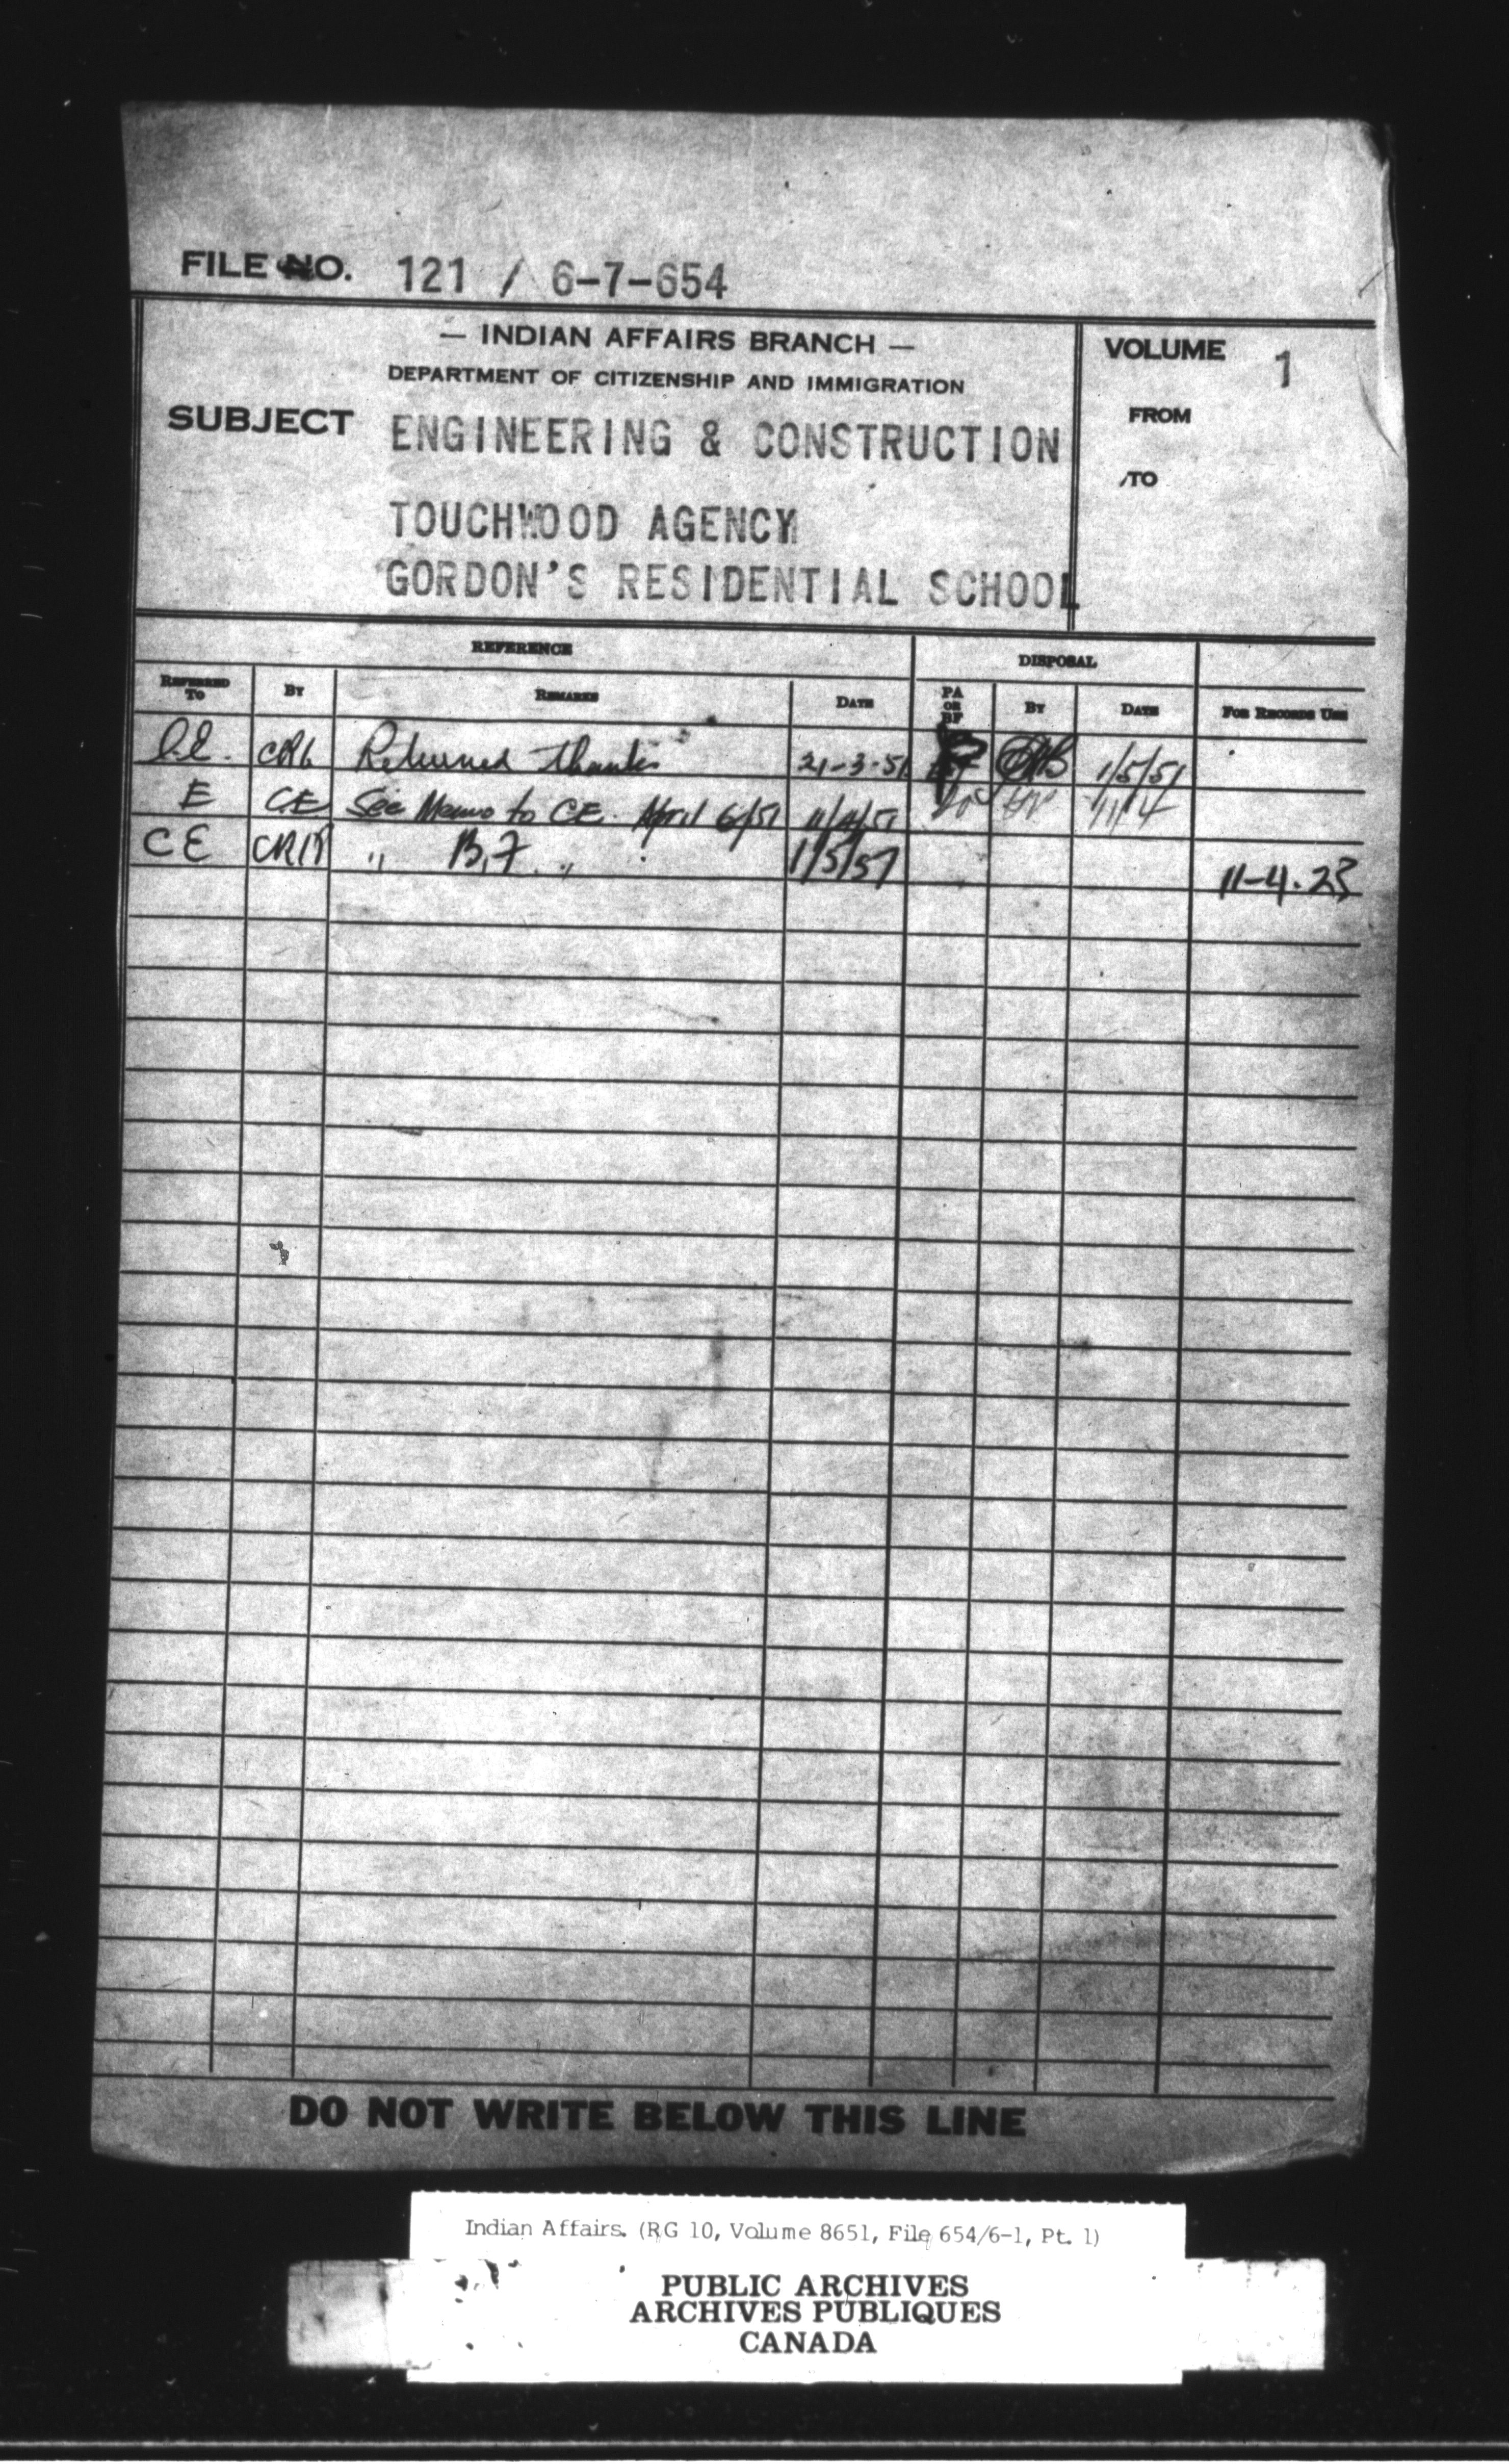 FILE NO. 121 / 6-7-654
— INDIAN AFFAIRS BRANCH —
DEPARTMENT OF CITIZENSHIP AND IMMIGRATION
VOLUME 1
FROM
TO
SUBJECT ENGINEERING & CONSTRUCTION
TOUCHWOOD AGENCY
GORDON'S RESIDENTIAL SCHOOL
REFERENCE DISPOSAL
REFERRED TO BY REMARKS DATE PA OR BF BY DATE FOR RECORDS USE
Returned Thanks 21-3-51 1/5/51
E CE See Memo to CE. April 6/51 11/4/51 11/4
CE " B.F. " 1/5/51
11-4.23
DO NOT WRITE BELOW THIS LINE
Indian Affairs. (RG 10, Volume 8651, File 654/6-1, Pt. 1)
PUBLIC ARCHIVES
ARCHIVES PUBLIQUES
CANADA